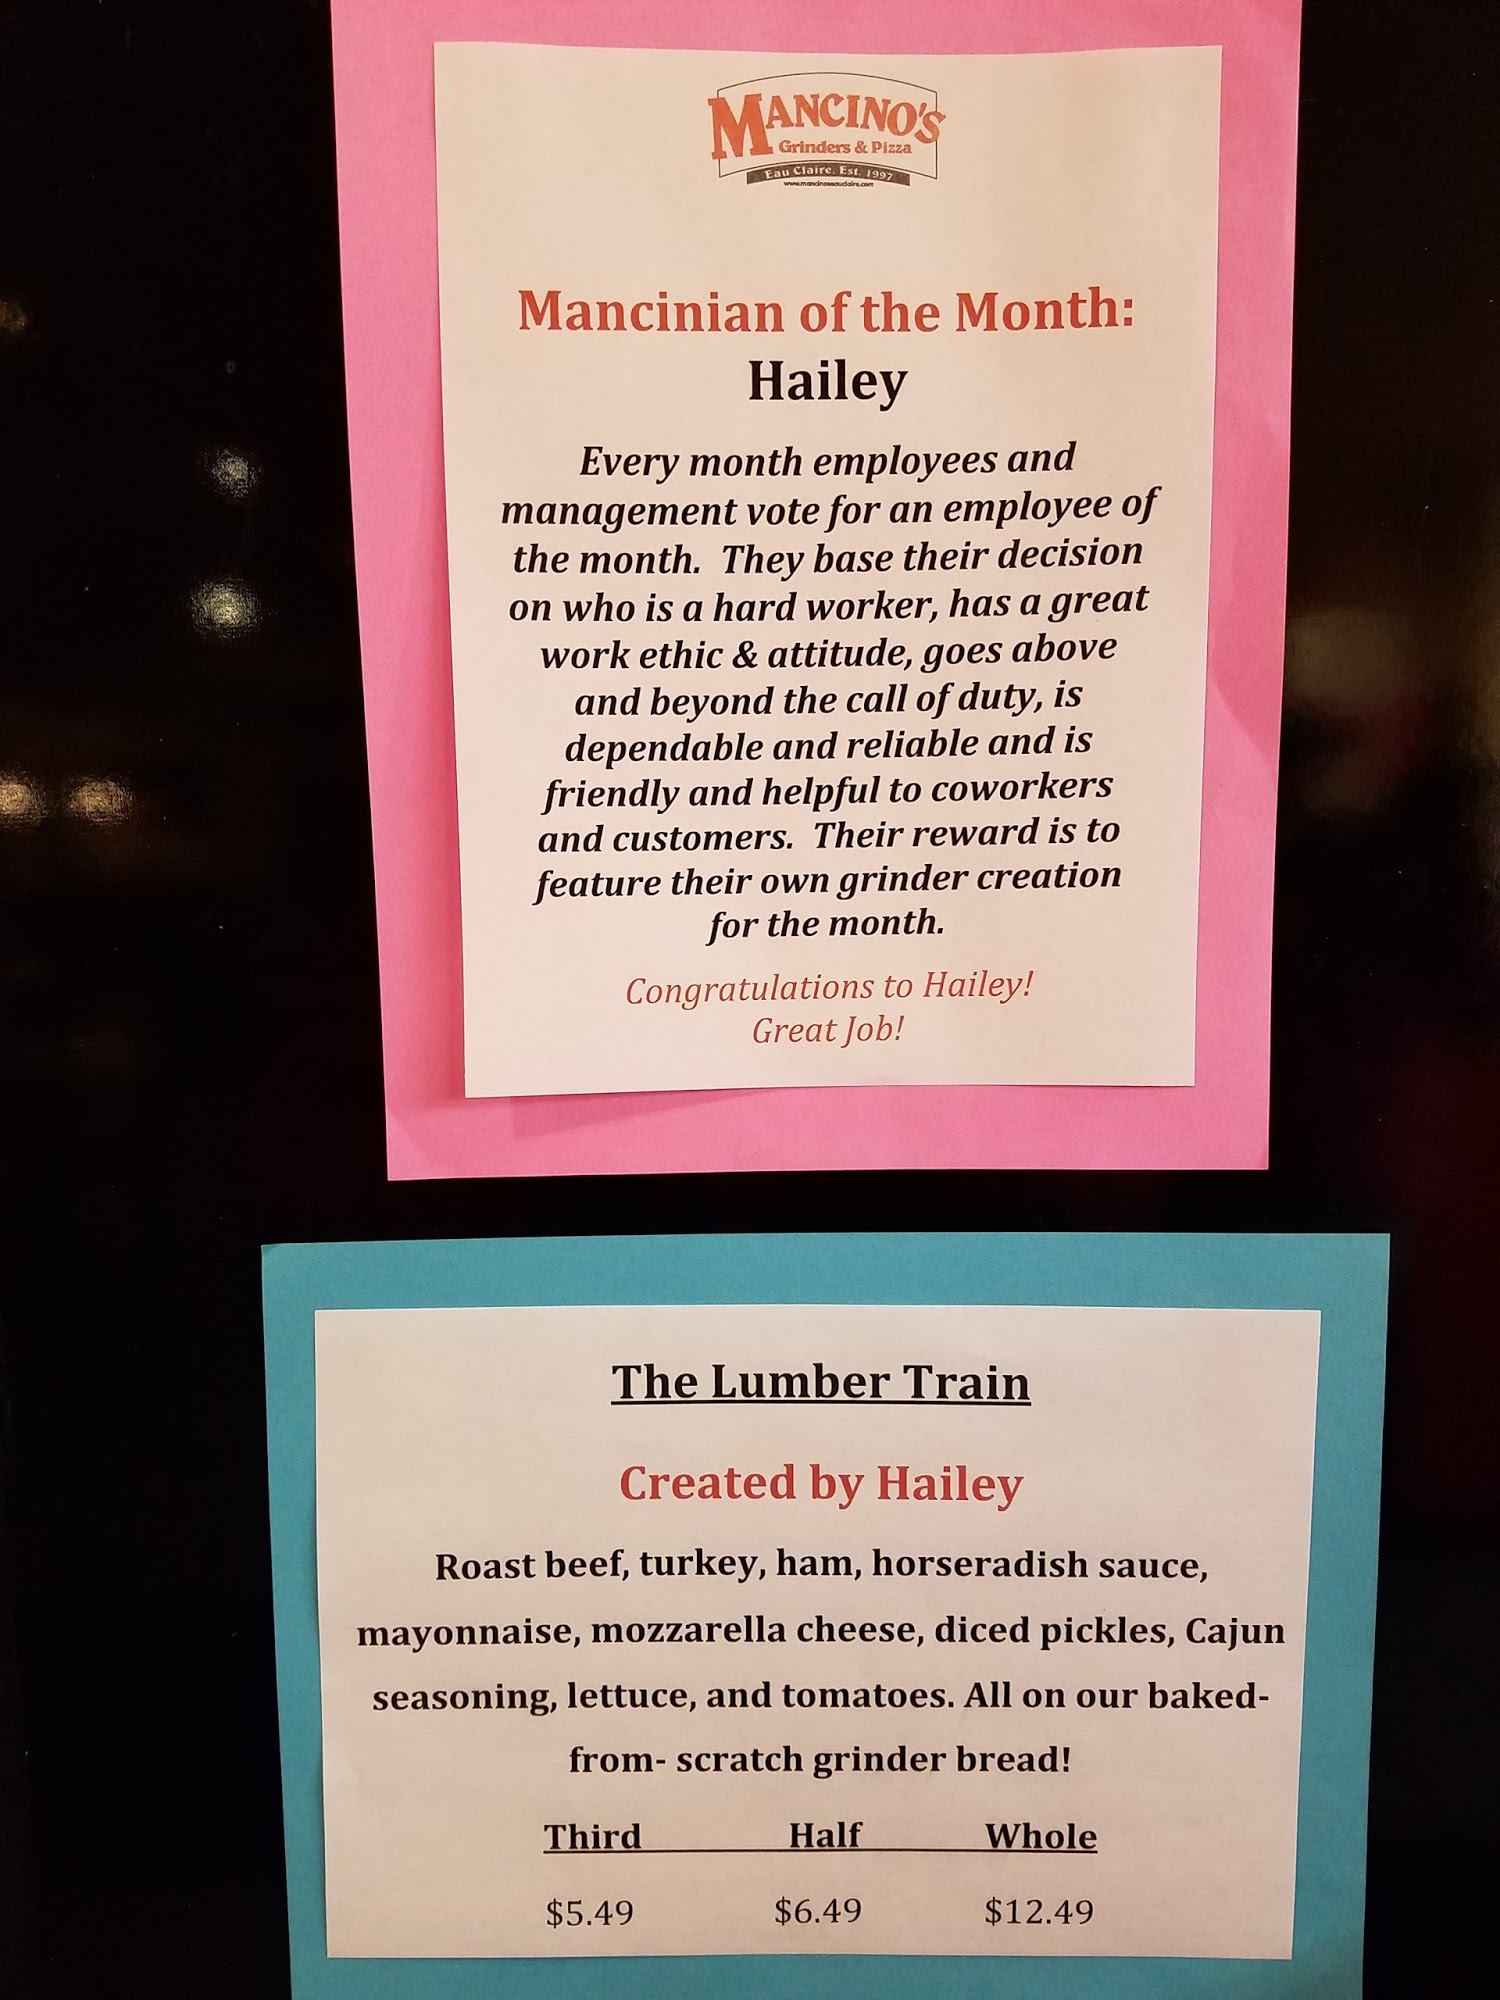 MANCINO'S
Grinders & Pizza
Eau Claire, Est. 1997
www.mancinoseauclaire.com
Mancinian of the Month:
Hailey
Every month employees and
management vote for an employee of
the month.  They base their decision
on who is a hard worker, has a great
work ethic & attitude, goes above
and beyond the call of duty, is
dependable and reliable and is
friendly and helpful to coworkers
and customers.  Their reward is to
feature their own grinder creation
for the month.
Congratulations to Hailey!
Great Job!
The Lumber Train
Created by Hailey
Roast beef, turkey, ham, horseradish sauce,
mayonnaise, mozzarella cheese, diced pickles, Cajun
seasoning, lettuce, and tomatoes. All on our baked-
from- scratch grinder bread!
Third Half Whole
$5.49 $6.49 $12.49